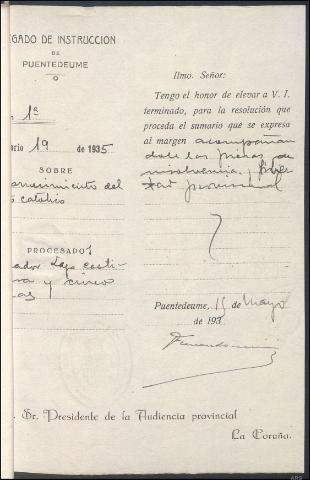 GADO DE INSTRUCCION
DE
PUENTEDEUME
1ª
ario 19 de 1935
SOBRE
del
PROCESADO
ador Lago casti-
y cinco
as
Ilmo. Señor:
Tengo el honor de elevar a V. I.
terminado, para la resolución que
proceda el sumario que se expresa
al margen acompañan
dole las piezas de
insolvencia y liber
tad provisional
Puentedeume, 15 de Mayo
de 1935
. Sr. Presidente de la Audiencia provincial
La Coruña.